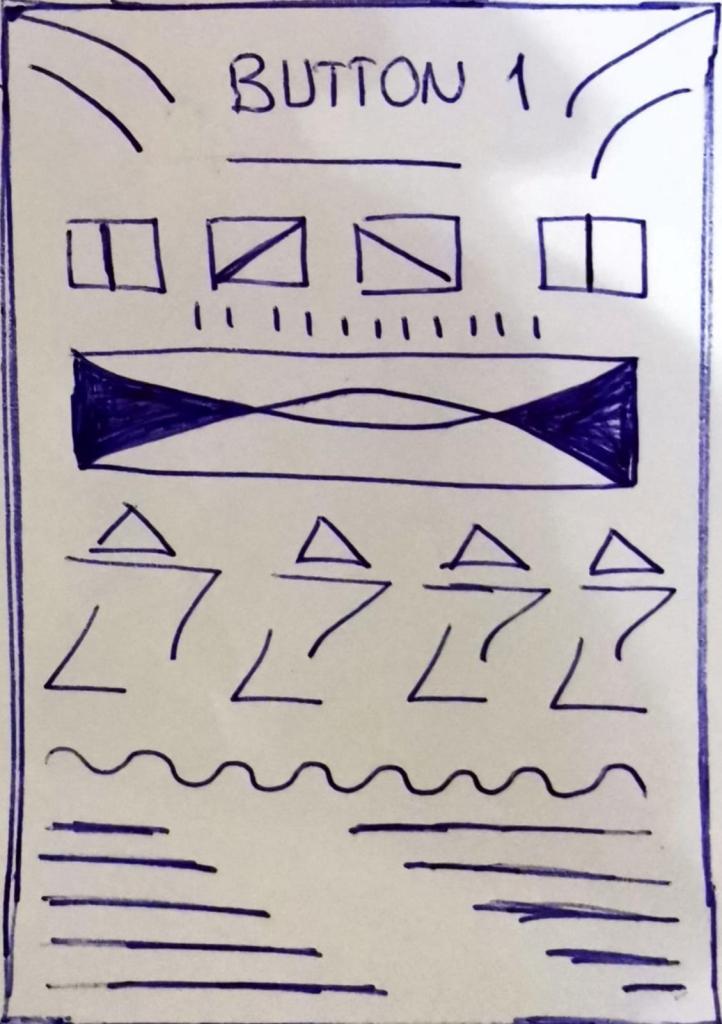 BUTTON 1